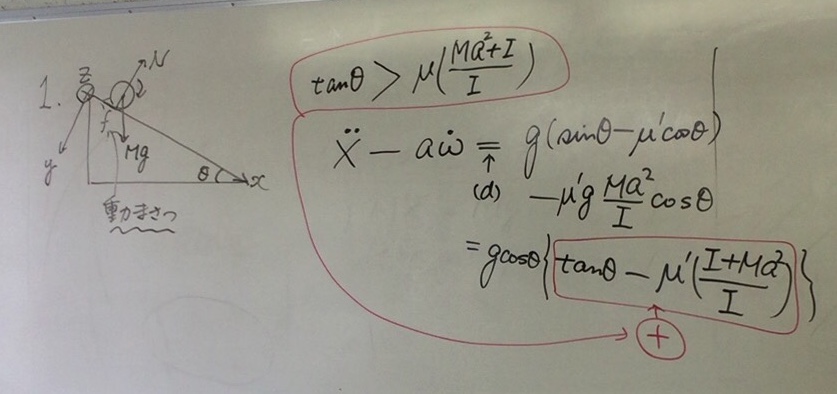 1.
z
N
f
Mg
y
θ
x
動まさつ
tanθ > μ(Ma²+I / I)
ẍ − aω̇ = g(sinθ−μ'cosθ)
(d) −μ'g Ma²/I cosθ
= gcosθ{tanθ − μ'(I+Ma² / I)}
+